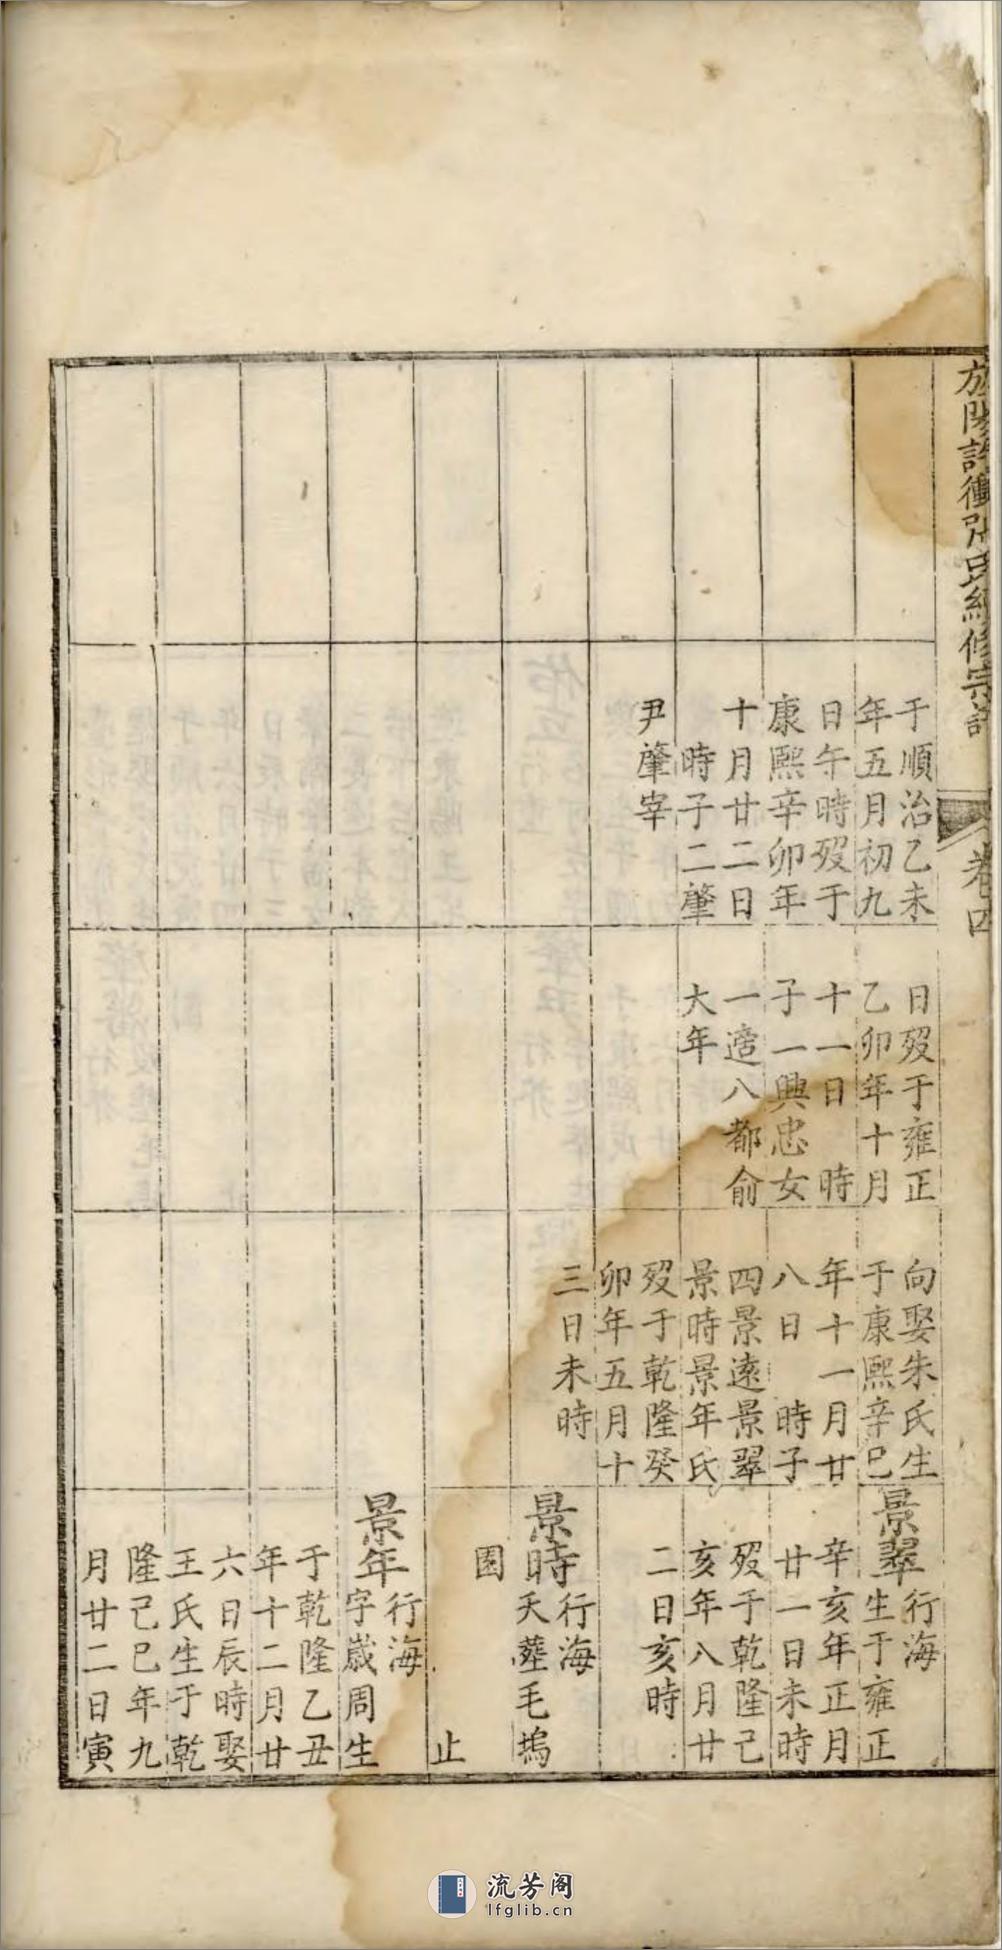 卷四
于順治乙未
年五月初九
日午時歿于
康熙辛卯年
十月廿二日
時子二肇
尹肇宰
日歿于雍正
乙卯年十月
十一日 時
子一興忠女
一適八都俞
大年
向娶朱氏生
于康熙辛巳
年十一月廿
八日 時子
四景遠景翠
景時景年氏
歿于乾隆癸
卯年五月十
三日未時
景翠
行海
生于雍正
辛亥年正月
廿一日未時
歿于乾隆己
亥年八月廿
二日亥時
景時
行海
夭塟毛塢
園
止
景年
行海
字歲周生
于乾隆乙丑
年十二月廿
六日辰時娶
王氏生于乾
隆己巳年九
月廿二日寅
流芳阁
lfglib.cn